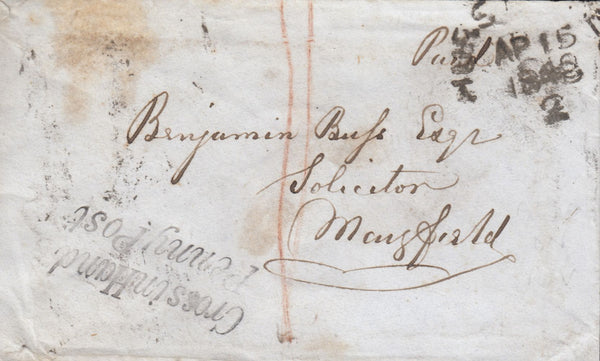 Paid
AP 15
1848
2
Benjamin Buss Esqr
Solicitor
Mayfield
Cross in Hand
Penny Post